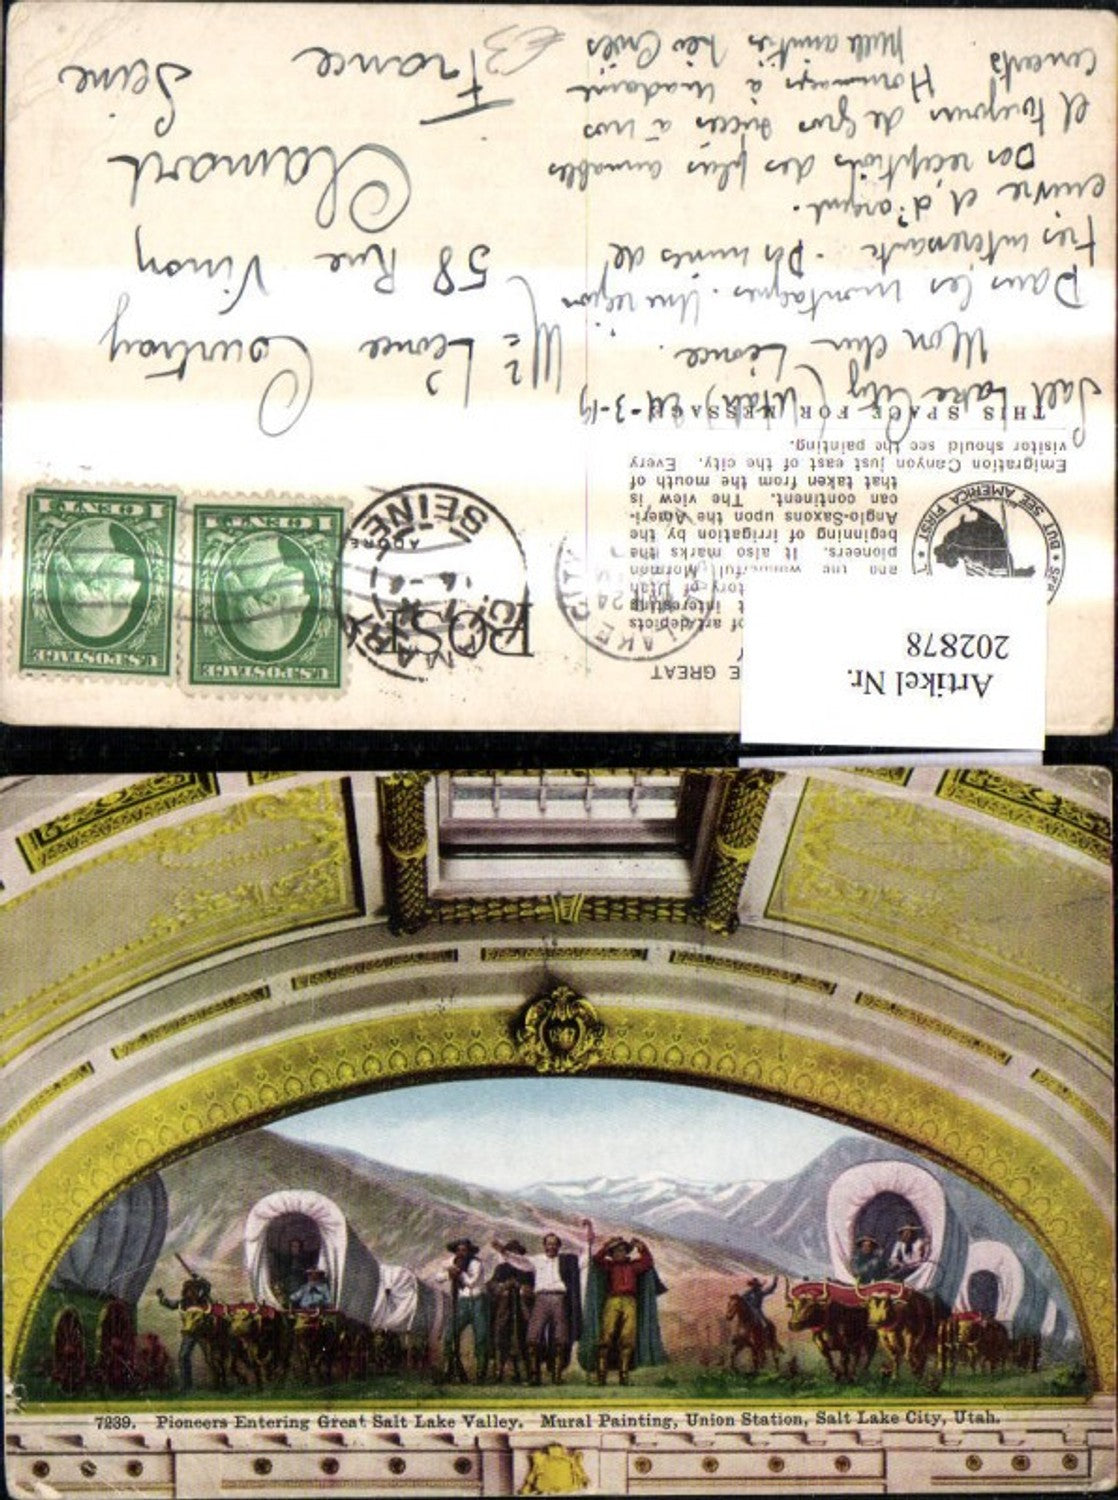 E GREAT
of art depicts
interesting
tory of Utah
and the wonderful Mormon
pioneers. It also marks the
beginning of irrigation by the
Anglo-Saxons upon the Ameri-
can continent. The view is
that taken from the mouth of
Emigration Canyon just east of the city. Every
visitor should see the painting.
THIS SPACE FOR MESSAGE
BUT SEE AMERICA FIRST
Artikel Nr.
202878
POST
U.S. POSTAGE
1 CENT 1
U.S. POSTAGE
1 CENT 1
LAKE CITY
SEINE
Salt Lake City (Utah) 24-3-19
Mon cher Léonce.
Dans les montagnes. Une région
très intéressante. Des mines de
cuivre et d'argent.
Des réceptions des plus aimables
et toujours de gros succès à nos
concerts
Hommages à Madame
Mille amitiés
Mr Léonce Courtray
58 Rue Vinoy
Clamart
Seine
France
£3
7239. Pioneers Entering Great Salt Lake Valley. Mural Painting, Union Station, Salt Lake City, Utah.